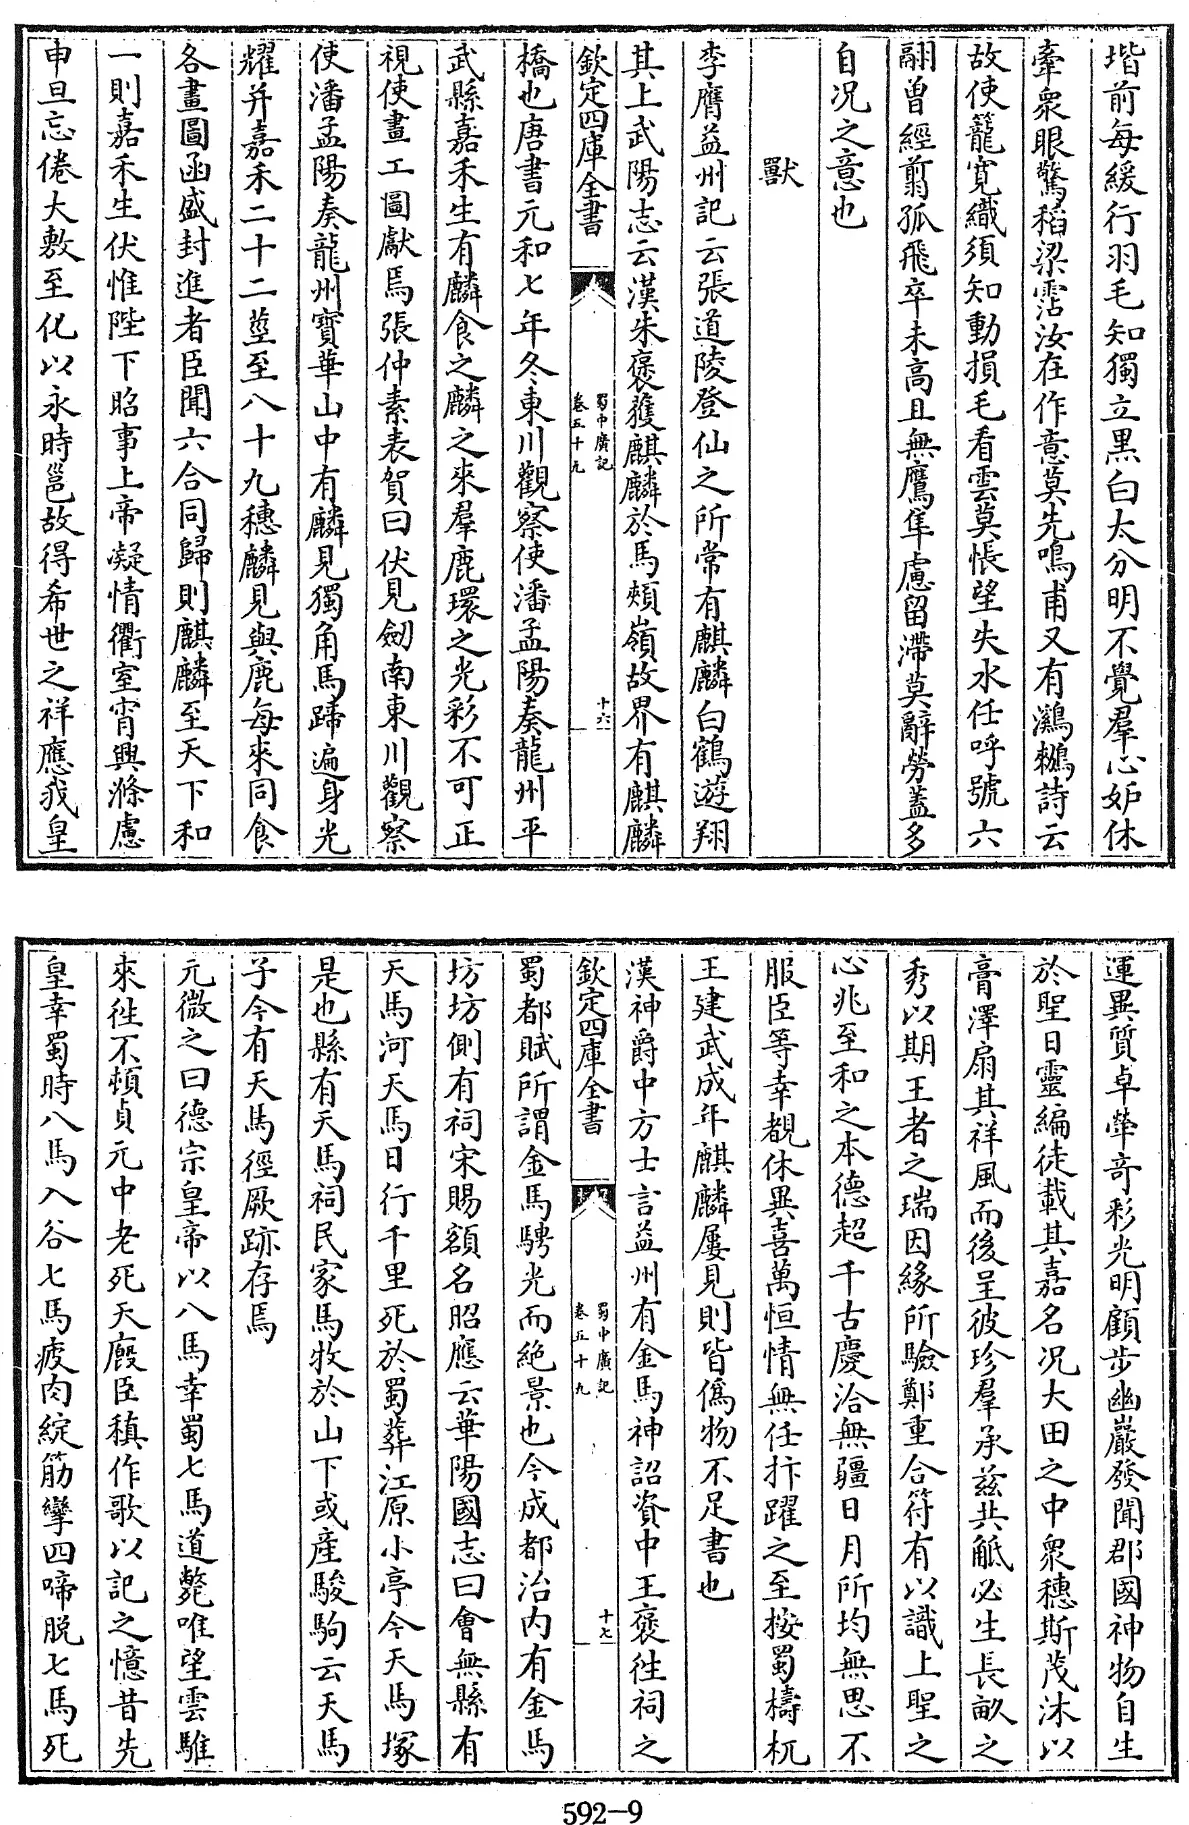 堦前每緩行羽毛知獨立黒白太分明不覺羣心妒休
牽衆眼驚稻梁霑汝在作意莫先鳴甫又有鸂鶒詩云
故使籠寛織須知動損毛看雲莫悵望失水任呼號六
翮曽經翦孤飛卒未高且無鷹隼慮留滯莫辭勞葢多
自况之意也
獸
李膺益州記云張道陵登仙之所常有麒麟白鶴遊翔
其上武陽志云漢朱褒獲麒麟於馬頰嶺故界有麒麟
欽定四庫全書
蜀中廣記
卷五十九
十六
橋也唐書元和七年冬東川觀察使潘孟陽奏龍州平
武縣嘉禾生有麟食之麟之來羣鹿環之光彩不可正
視使畫工圖獻焉張仲素表賀曰伏見劒南東川觀察
使潘孟陽奏龍州寳華山中有麟見獨角馬蹄遍身光
耀并嘉禾二十二莖至八十九穗麟見與鹿每來同食
各畫圖函盛封進者臣聞六合同歸則麒麟至天下和
一則嘉禾生伏惟陛下昭事上帝凝情衢室宵興滌慮
申旦忘倦大敷至化以永時邕故得希世之祥應我皇
運異質卓犖竒彩光明顧步幽巖發聞郡國神物自生
於聖日靈編徒載其嘉名况大田之中衆穗斯茂沐以
膏澤扇其祥風而後呈彼珍羣承兹共觝必生長畝之
秀以期王者之瑞因縁所驗鄭重合符有以識上聖之
心兆至和之本德超千古慶洽無疆日月所均無思不
服臣等幸覩休異喜萬恒情無任抃躍之至按蜀檮杌
王建武成年麒麟屢見則皆偽物不足書也
漢神爵中方士言益州有金馬神詔資中王褒徃祠之
欽定四庫全書
蜀中廣記
卷五十九
十七
蜀都賦所謂金馬騁光而絶景也今成都治内有金馬
坊坊側有祠宋賜額名昭應云華陽國志曰會無縣有
天馬河天馬日行千里死於蜀葬江原小亭今天馬塚
是也縣有天馬祠民家馬牧於山下或産駿駒云天馬
子今有天馬徑厥跡存焉
元微之曰德宗皇帝以八馬幸蜀七馬道斃唯望雲騅
來徃不頓貞元中老死天廏臣稹作歌以記之憶昔先
皇幸蜀時八馬入谷七馬疲肉綻筋攣四啼脱七馬死
592-9